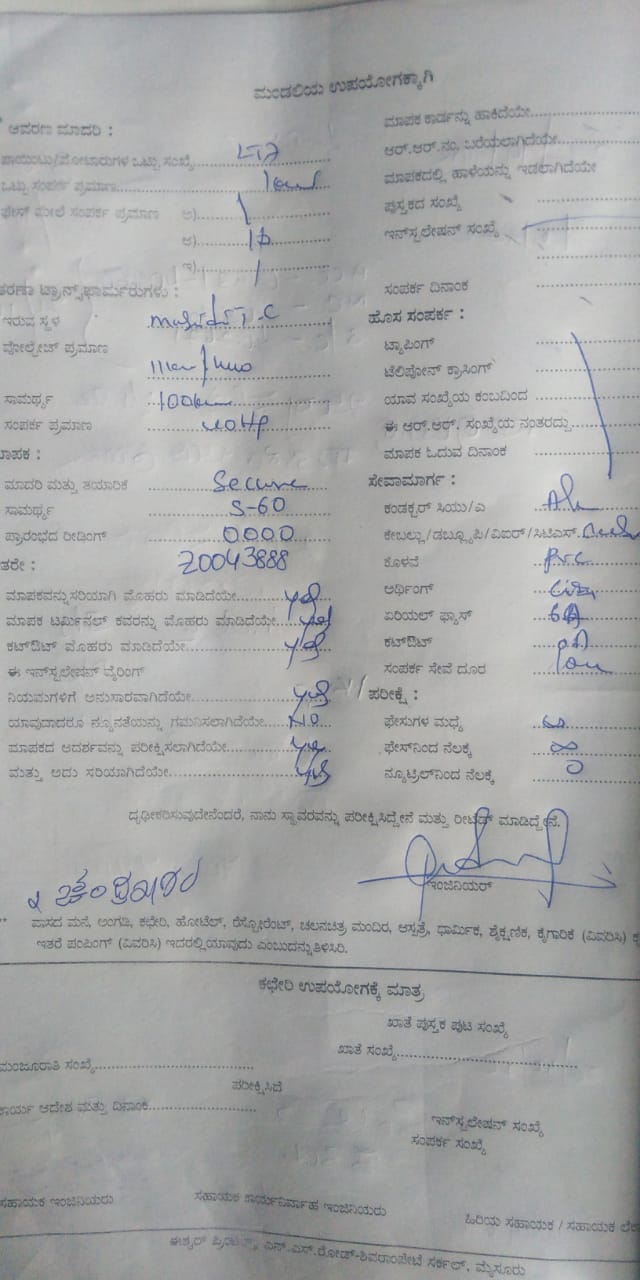 ಮಂಡಲಿಯ ಉಪಯೋಗಕ್ಕಾಗಿ
ಆವರಣ ಮಾದರಿ :
ಪಾಯಿಂಟು/ಮೋಟಾರುಗಳ ಒಟ್ಟು ಸಂಖ್ಯೆ
ಒಟ್ಟು ಸಂಪರ್ಕ ಪ್ರಮಾಣ
ಫೇಸ್ ಮೇಲೆ ಸಂಪರ್ಕ ಪ್ರಮಾಣ ಅ)
ಆ) 1ф
ಇ)
ಟ್ರಾನ್ಸ್‌ಫಾರ್ಮರುಗಳು :
ಇರುವ ಸ್ಥಳ
ವೋಲ್ಟೇಜ್ ಪ್ರಮಾಣ
ಸಾಮರ್ಥ್ಯ
ಸಂಪರ್ಕ ಪ್ರಮಾಣ
ಮಾಪಕ :
ಮಾದರಿ ಮತ್ತು ತಯಾರಿಕೆ Secure
ಸಾಮರ್ಥ್ಯ 5-60
ಪ್ರಾರಂಭದ ರೀಡಿಂಗ್ 0000
ಇತರೇ : 20043888
ಮಾಪಕವನ್ನು ಸರಿಯಾಗಿ ಮೊಹರು ಮಾಡಿದೆಯೇ yes
ಮಾಪಕ ಟರ್ಮಿನಲ್ ಕವರನ್ನು ಮೊಹರು ಮಾಡಿದೆಯೇ yes
ಕಟ್‌ಔಟ್ ಮೊಹರು ಮಾಡಿದೆಯೇ yes
ಈ ಇನ್‌ಸ್ಟಲೇಷನ್ ವೈರಿಂಗ್
ನಿಯಮಗಳಿಗೆ ಅನುಸಾರವಾಗಿದೆಯೇ yes
ಯಾವುದಾದರೂ ನ್ಯೂನತೆಯನ್ನು ಗಮನಿಸಲಾಗಿದೆಯೇ NO
ಮಾಪಕದ ಆದರ್ಶವನ್ನು ಪರೀಕ್ಷಿಸಲಾಗಿದೆಯೇ yes
ಮತ್ತು ಅದು ಸರಿಯಾಗಿದೆಯೇ yes
ಮಾಪಕ ಕಾರ್ಡನ್ನು ಹಾಕಿದೆಯೇ
ಆರ್.ಆರ್.ನಂ. ಬರೆಯಲಾಗಿದೆಯೇ
ಮಾಪಕದಲ್ಲಿ ಹಾಳೆಯನ್ನು ಇಡಲಾಗಿದೆಯೇ
ಪುಸ್ತಕದ ಸಂಖ್ಯೆ
ಇನ್‌ಸ್ಟಲೇಷನ್ ಸಂಖ್ಯೆ
ಸಂಪರ್ಕ ದಿನಾಂಕ
ಹೊಸ ಸಂಪರ್ಕ :
ಟ್ಯಾಪಿಂಗ್
ಟೆಲಿಫೋನ್ ಕ್ರಾಸಿಂಗ್
ಯಾವ ಸಂಖ್ಯೆಯ ಕಂಬದಿಂದ
ಈ ಆರ್.ಆರ್. ಸಂಖ್ಯೆಯ ನಂತರದ್ದು
ಮಾಪಕ ಓದುವ ದಿನಾಂಕ
ಸೇವಾಮಾರ್ಗ :
ಕಂಡಕ್ಟರ್ ಸಿಯು/ಎ
ಕೇಬಲ್ಲು/ಡಬ್ಲ್ಯೂಪಿ/ವಿಐರ್/ಸಿಟಿಎಸ್
ಕೊಳವೆ
ಅರ್ಥಿಂಗ್
ಏರಿಯಲ್ ಫ್ಯೂಸ್
ಕಟ್‌ಔಟ್
ಸಂಪರ್ಕ ಸೇವೆ ದೂರ
ಪರೀಕ್ಷೆ :
ಫೇಸುಗಳ ಮಧ್ಯೆ ∞
ಫೇಸ್‌ನಿಂದ ನೆಲಕ್ಕೆ ∞
ನ್ಯೂಟ್ರಲ್‌ನಿಂದ ನೆಲಕ್ಕೆ 0
ದೃಢೀಕರಿಸುವುದೇನೆಂದರೆ, ನಾನು ಸ್ಥಾವರವನ್ನು ಪರೀಕ್ಷಿಸಿದ್ದೇನೆ ಮತ್ತು ರೀಟೆಡ್ ಮಾಡಿದ್ದೇನೆ.
ಇಂಜಿನಿಯರ್
** ವಾಸದ ಮನೆ, ಅಂಗಡಿ, ಕಛೇರಿ, ಹೋಟೆಲ್, ರೆಸ್ಟೋರೆಂಟ್, ಚಲನಚಿತ್ರ ಮಂದಿರ, ಆಸ್ಪತ್ರೆ, ಧಾರ್ಮಿಕ, ಶೈಕ್ಷಣಿಕ, ಕೈಗಾರಿಕೆ (ವಿವರಿಸಿ)
ಇತರೆ ಪಂಪಿಂಗ್ (ವಿವರಿಸಿ) ಇದರಲ್ಲಿ ಯಾವುದು ಎಂಬುದನ್ನು ತಿಳಿಸಿರಿ.
ಕಛೇರಿ ಉಪಯೋಗಕ್ಕೆ ಮಾತ್ರ
ಖಾತೆ ಪುಸ್ತಕ ಪುಟ ಸಂಖ್ಯೆ
ಮಂಜೂರಾತಿ ಸಂಖ್ಯೆ ಖಾತೆ ಸಂಖ್ಯೆ
ಪರೀಕ್ಷಿಸಿದೆ
ಕಾರ್ಯ ಆದೇಶ ಮತ್ತು ದಿನಾಂಕ
ಇನ್‌ಸ್ಟಲೇಷನ್ ಸಂಖ್ಯೆ
ಸಂಪರ್ಕ ಸಂಖ್ಯೆ
ಸಹಾಯಕ ಇಂಜಿನಿಯರು ಸಹಾಯಕ ಕಾರ್ಯನಿರ್ವಾಹ ಇಂಜಿನಿಯರು ಹಿರಿಯ ಸಹಾಯಕ / ಸಹಾಯಕ
ಈಶ್ವರ್ ಪ್ರಿಂಟರ್ಸ್, ಎನ್.ಎಸ್.ರೋಡ್-ಶಿವರಾಂಪೇಟೆ ಸರ್ಕಲ್, ಮೈಸೂರು